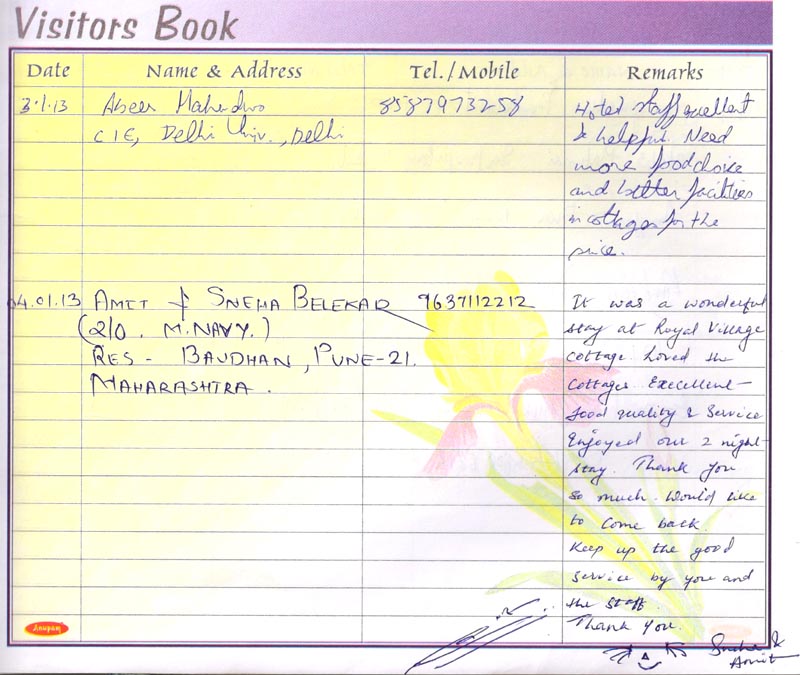 Visitors Book
Date Name & Address Tel./Mobile Remarks
3.1.13 Abeer 8587973258 Hotel staff excellent
CIE, Delhi Univ., Delhi & helpful. Need
more food choice
and better facilities
in cottages for the
price.
04.01.13 AMIT & SNEHA BELEKAR 9637112212 It was a wonderful
(2/0. M.NAVY.) stay at Royal Village
RES - BAUDHAN, PUNE-21. Cottage. Loved the
MAHARASHTRA. Cottages. Execellent
food quality & Service
Enjoyed our 2 night
stay. Thank you
so much. Would like
to come back.
Keep up the good
service by you and
the staff.
Thank you.
Sneha &
Amit
Anupam